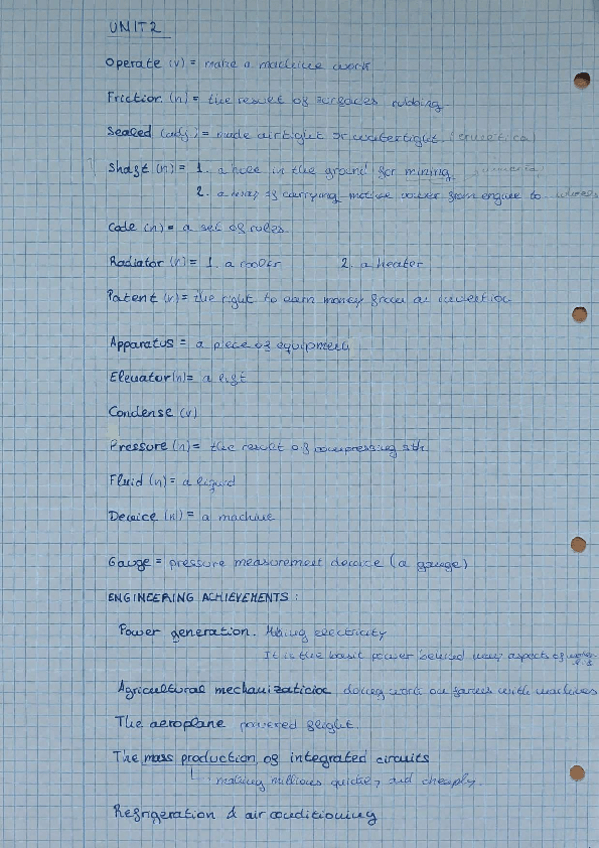 UNIT 2
Operate (v) = make a machine work
Friction (n) = the result of surfaces rubbing
Sealed (adj) = made airtight or watertight.
Shaft (n) = 1. a hole in the ground for mining
2. a way of carrying motive power from engine to wheels
Code (n) = a set of rules
Radiator (n) = 1. a cooler 2. a heater
Patent (v) = the right to earn money from an invention
Apparatus = a piece of equipment
Elevator (n) = a lift
Condense (v)
Pressure (n) = the result of compressing sth
Fluid (n) = a liquid
Device (n) = a machine
Gauge = pressure measurement device (a gauge)
ENGINEERING ACHIEVEMENTS:
Power generation. Making electricity
It is the basic power behind many aspects of
Agricultural mechanization doing work on farms with machines
The aeroplane powered flight.
The mass production of integrated circuits
making millions quickly and cheaply.
Refrigeration & air conditioning